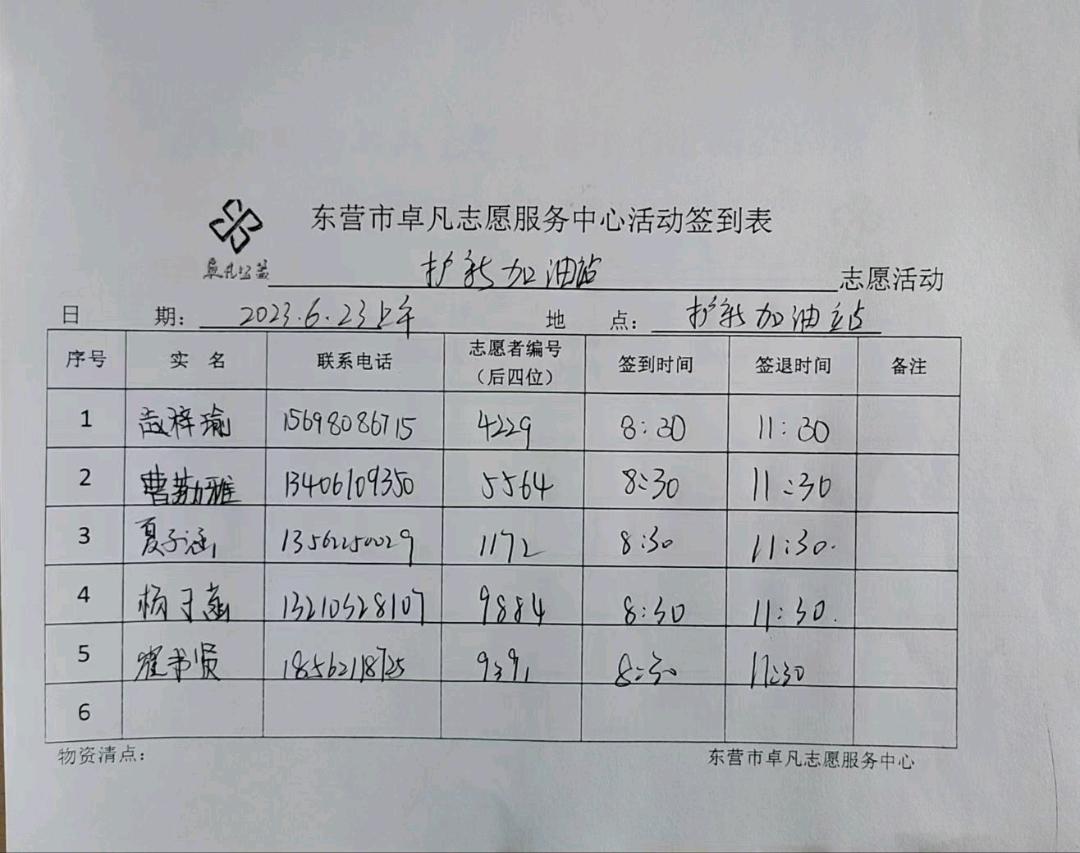 东营市卓凡志愿服务中心活动签到表
卓凡公益 护新加油站 志愿活动
日 期: 2023.6.23上午 地 点: 护新加油站
序号 实 名 联系电话 志愿者编号（后四位） 签到时间 签退时间 备注
1 赵梓瑜 15698086715 4229 8:30 11:30
2 曹勤雅 13406109350 5564 8:30 11:30
3 夏子涵 13562250029 1172 8:30 11:30.
4 杨子菡 13210328107 9884 8:30 11:30.
5 翟书贤 18562118725 9391 8:30 11:30
6
物资清点: 东营市卓凡志愿服务中心